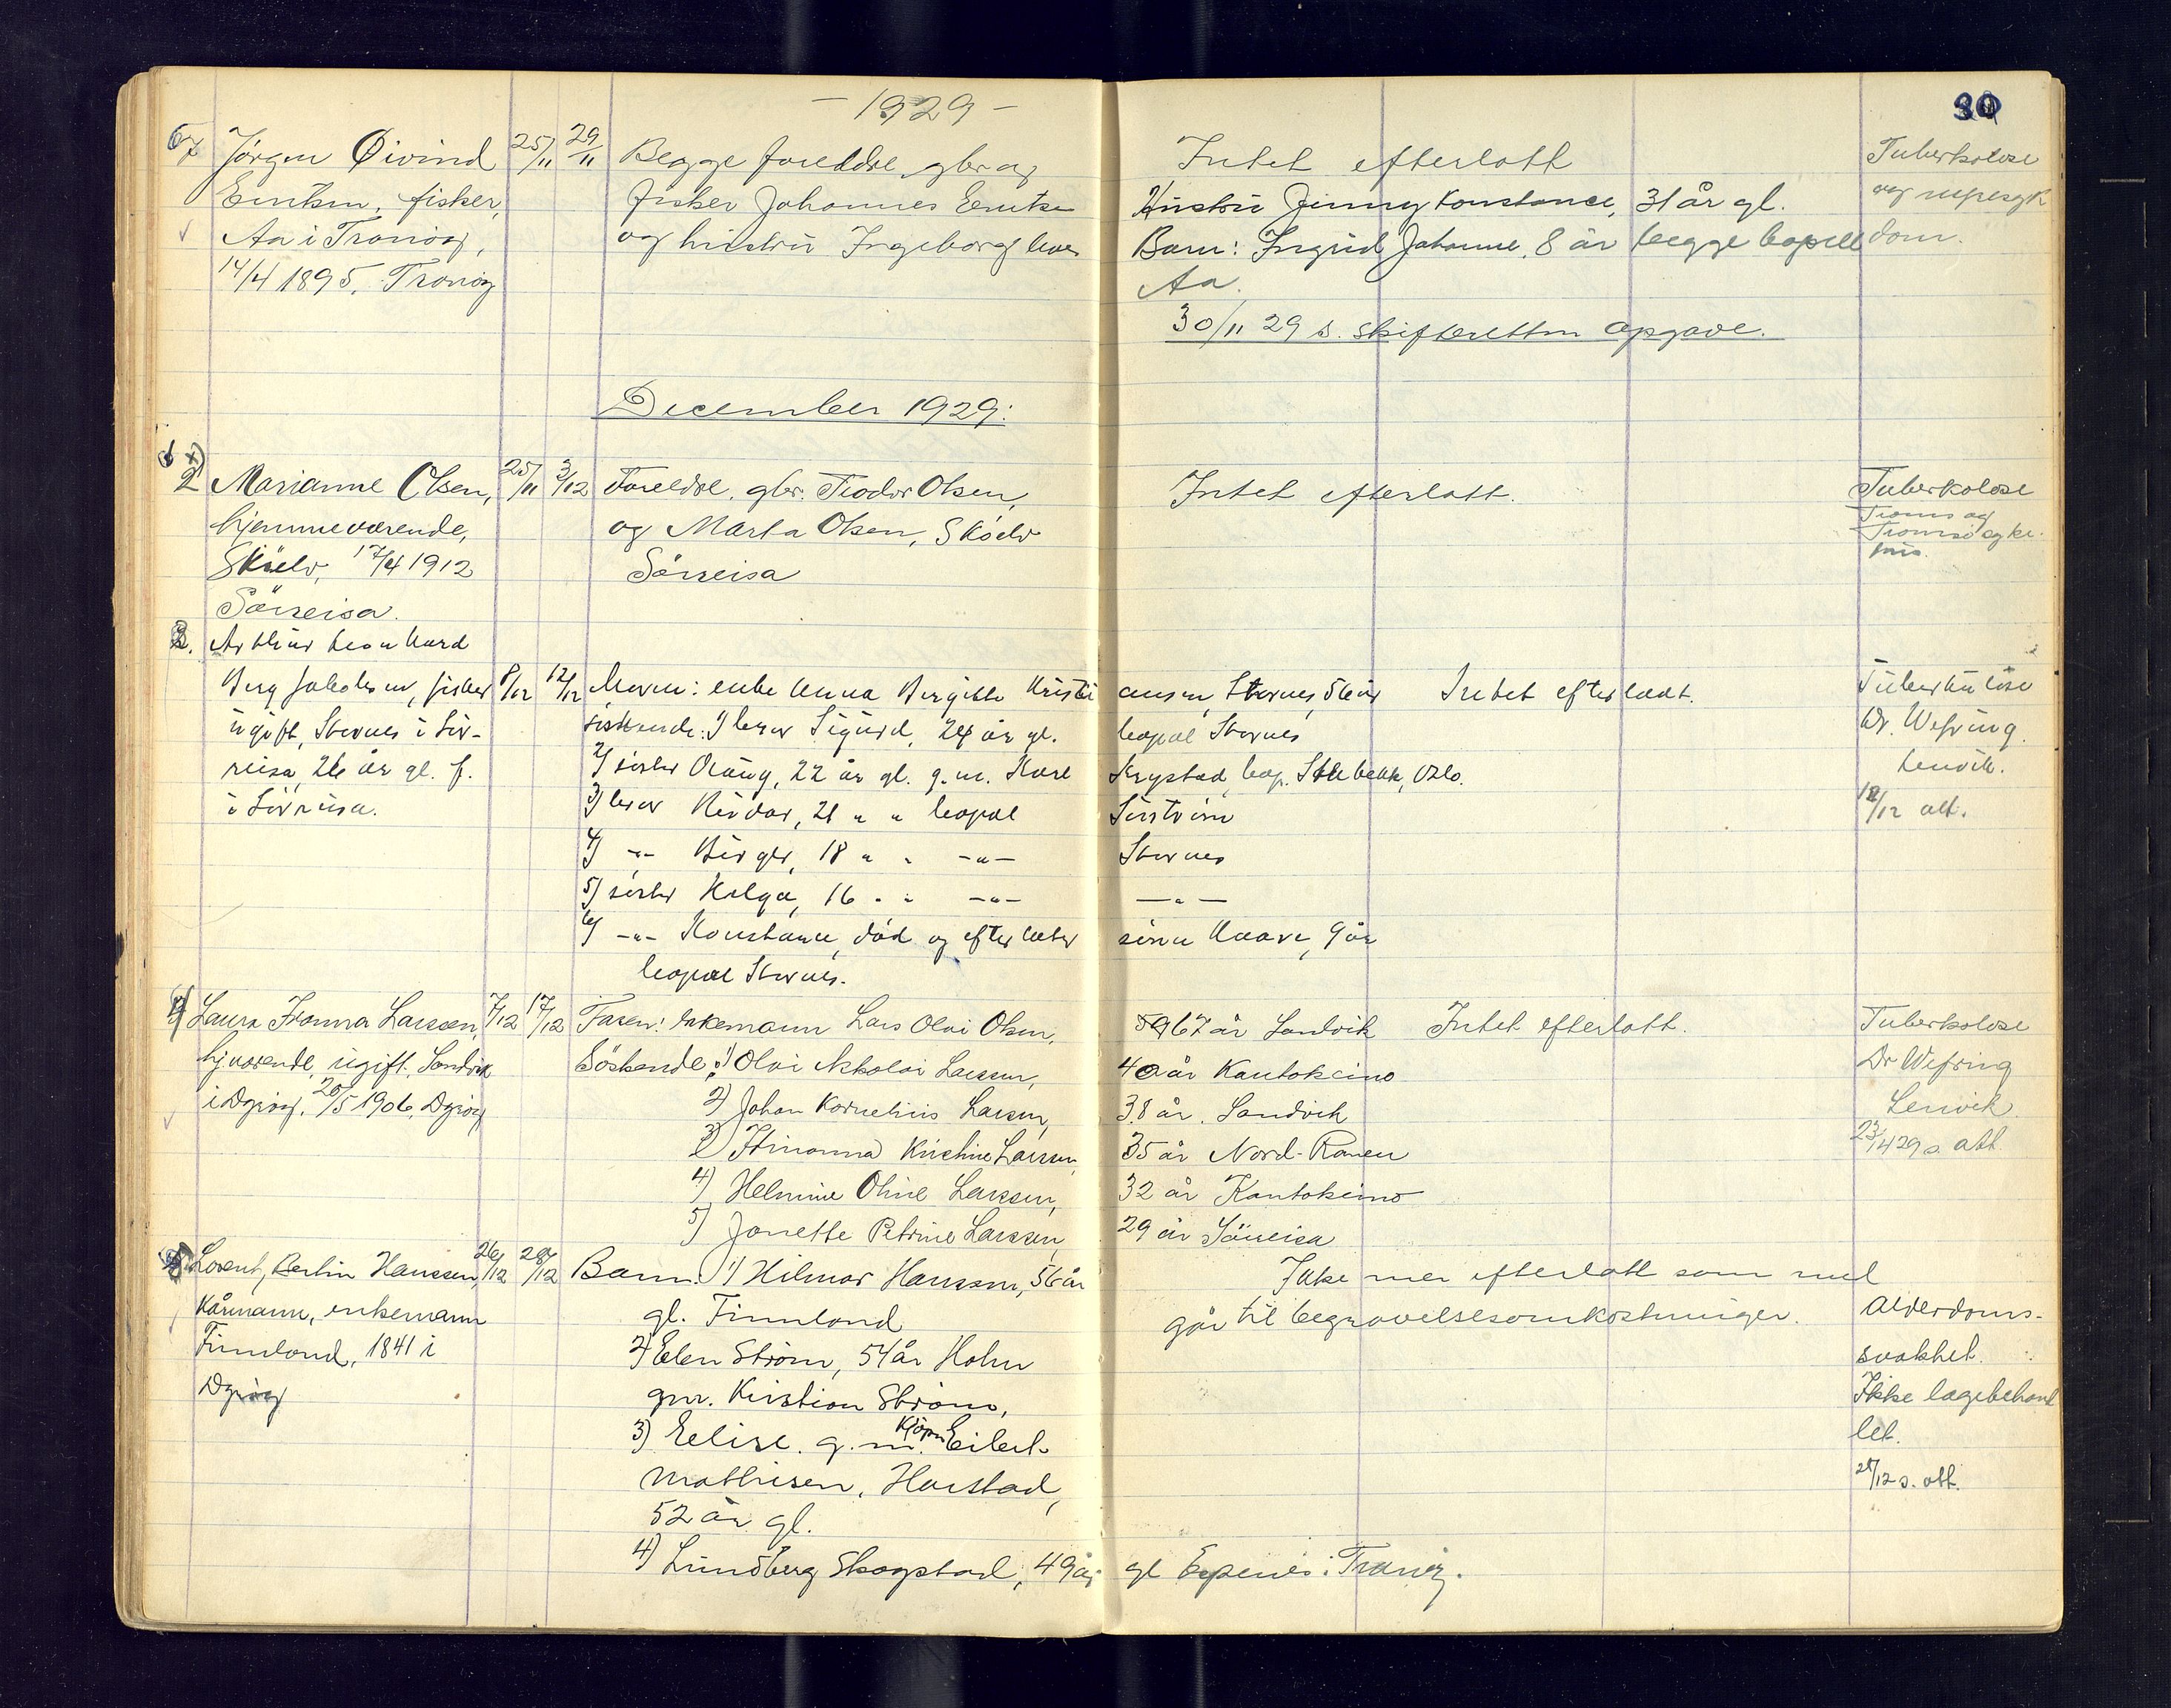 - 1929 -
30
67 Jörgen Öivind 25/11 29/11 Begge foreldre, gbr. og Intet efterlatt Tuberkolose
fisker, fisker Johannes Hustru Jinny Konstance, 31 år gl. og
Aa i Tranöy, og hustru Ingeborg Barn: Ingrid Johanne, 8 år begge bopæl dom.
14/4 1895, Tranöy Aa.
30/11 29 s. skifteretten opgave.
December 1929:
2 Marianne Olsen, 25/11 3/12 Foreldre, gbr. Teodor Olsen, Intet efterlatt. Tuberkolose
hjemmeværende, og Marta Olsen, Sköelv Troms og
Sköelv, 17/4 1912 Sörreisa Tromsö syke-
Sörreisa. hus.
3. Arthur Leonhard
Berg Jakobsen, fisker 8/12 12/12 Moren: enke Anna Birgitte Kristiansen, Stornes, 56 år Intet efterladt. Tuberkulose
ugift, Stornes i Sör- söskende: 1) bror Sigurd, 24 år gl. bopæl Stornes Dr. Wefring
reisa, 26 år gl. f. 2) söster Olaug, 22 år gl. g.m. Karl Krystad, bop. Oslo. Lenvik.
i Sörreisa. 3) bror Reidar, 21 " " bopæl 12/12 att.
4) -"- Birger, 18 " " -"- Stornes
5) söster Helga, 16 " " -"- -"-
6) -"- Konstanse, död og efterlater sönn Kaare, 9 år
bopæl Stornes.
4) Laura Larssen, 7/12 17/12 Faren: enkemann Lars Olai Olsen, 67 år Sandvik Intet efterlatt. Tuberkolose
hjvarende, ugift. Sandvik Söskende: 1) Olai Nikolai Larssen, 40 år Kautokeino Dr Wefring
i Dyröy. 20/5 1906, Dyröy 2) Johan Kornelius Larssen, 38 år. Sandvik Lenvik.
3) Kristine Larssen, 35 år Nord-Ranen s. att.
4) Helmine Oline Larssen, 32 år Kautokeino
5) Jonette Petrine Larssen, 29 år Sörreisa
5 Lorent, Bertin Hanssen, 26/12 28/12 Barn: 1) Hilmar Hanssen, 56 år Ikke mer efterlatt som med
Kårmann, enkemann gl. Finnland går til begravelsesomkostninger. Alderdoms-
Finnland, 1841 i 2) Elen Ström, 54 år Holm svakhet.
Dyröy gm. Kristian Ström, Ikke lægebehand
3) Eelise. g.m. Kjöpm. Eilert let.
Mathisen, Harstad, 28/12 s. att.
52 år gl.
4) Lundberg Skogstad, 49 år gl Espenes i Tranöy.